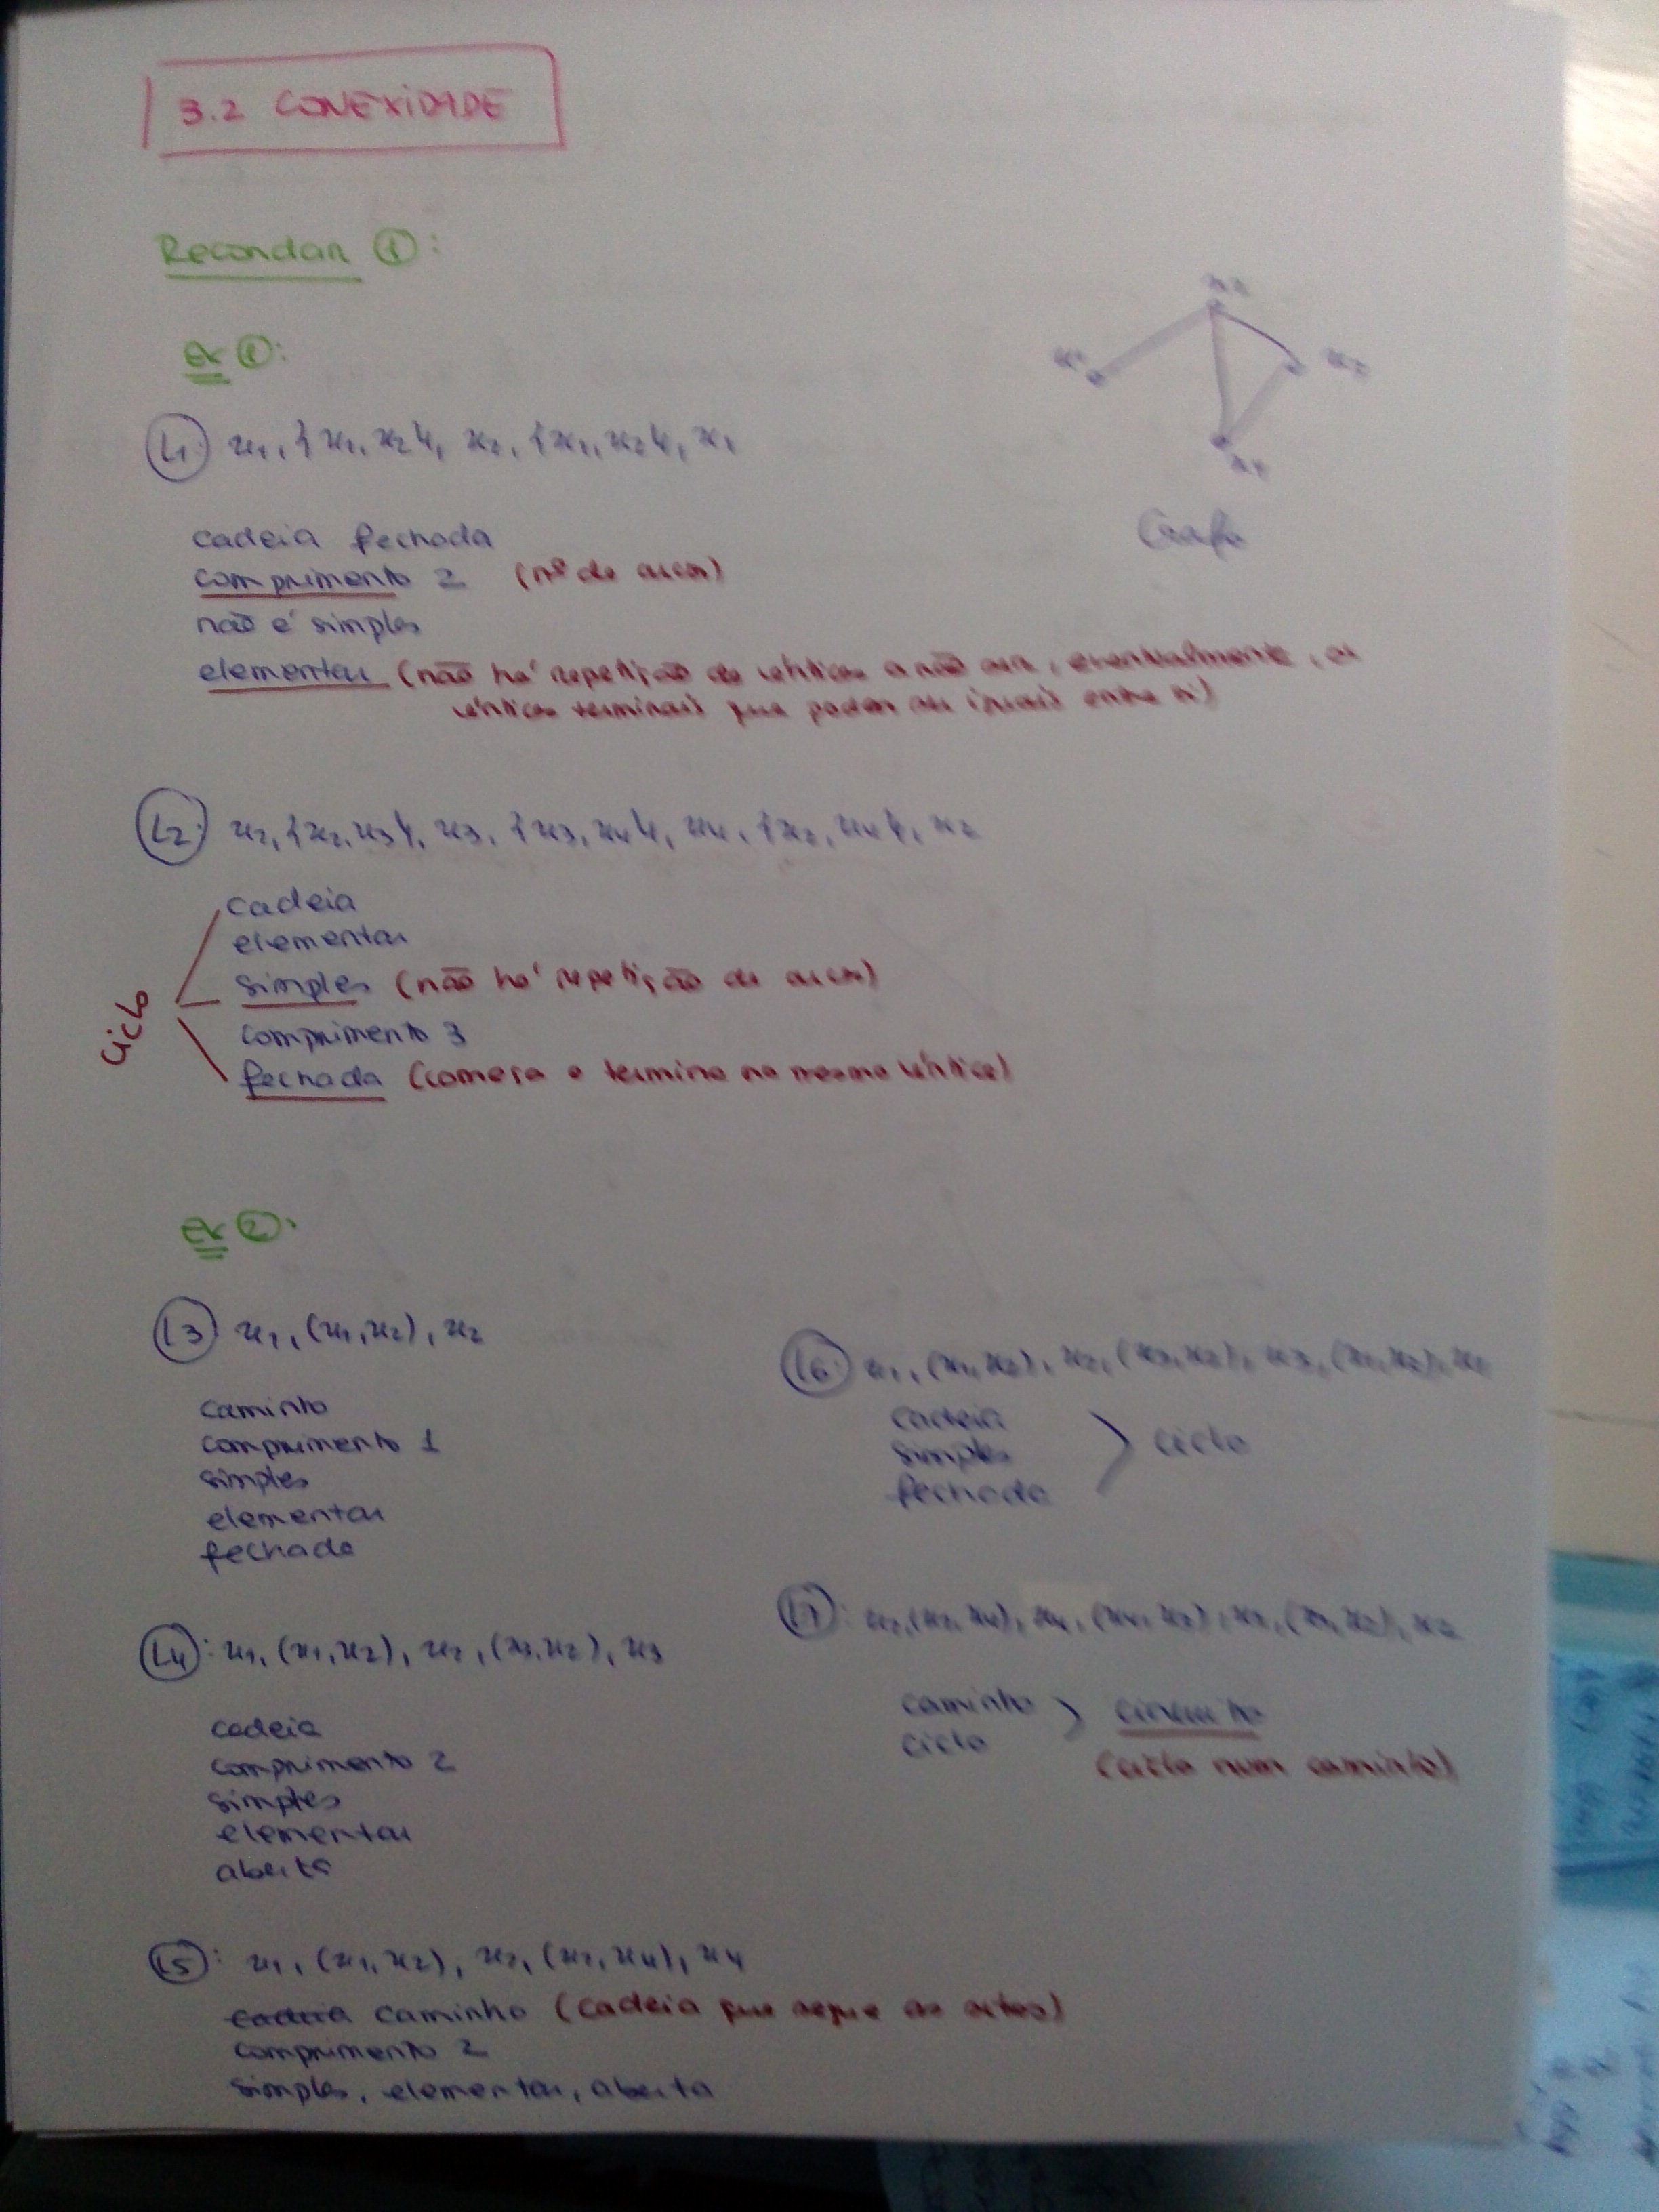 3.2 CONEXIDADE
Recordar ①:
ex ①:
x2
x1
x4
Grafo
L1: x1, {x1, x2}, x2, {x1, x2}, x1
cadeia fechada
comprimento 2 (nº de arcos)
não é simples
elementar (não há repetição de vértices a não ser, eventualmente, os
vértices terminais que podem ser iguais entre si)
L2: x2, {x2, x3}, x3, {x3, x4}, x4, {x2, x4}, x2
cadeia
elementar
simples (não há repetição de arcos)
comprimento 3
fechada (começa e termina no mesmo vértice)
ciclo
ex ②:
L3: x1, (x1, x2), x2
caminho
comprimento 1
simples
elementar
fechado
L4: x1, (x1, x2), x2, (x3, x2), x3
cadeia
comprimento 2
simples
elementar
aberta
L5: x1, (x1, x2), x2, (x2, x4), x4
cadeia caminho (cadeia que segue as setas)
comprimento 2
simples, elementar, aberta
L6: x1, (x1, x2), x2, (x3, x2), x3,
cadeia
simples
fechada
ciclo
L7: x2, (x2, x4), x4, (x4, x3), x3, (x3, x2), x2
caminho
ciclo
circuito
(ciclo num caminho)